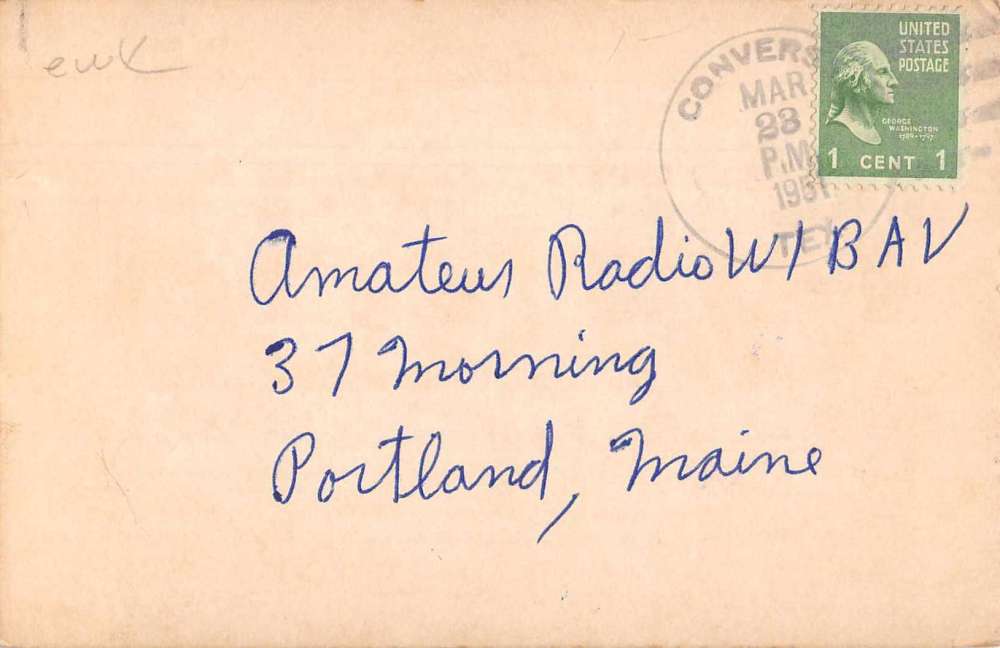 CONVERS
MAR
23
P.M.
1951
TEX
UNITED
STATES
POSTAGE
GEORGE
WASHINGTON
1789-1797
1 CENT 1
Amateur Radio W1BAV
37 Morning
Portland, Maine